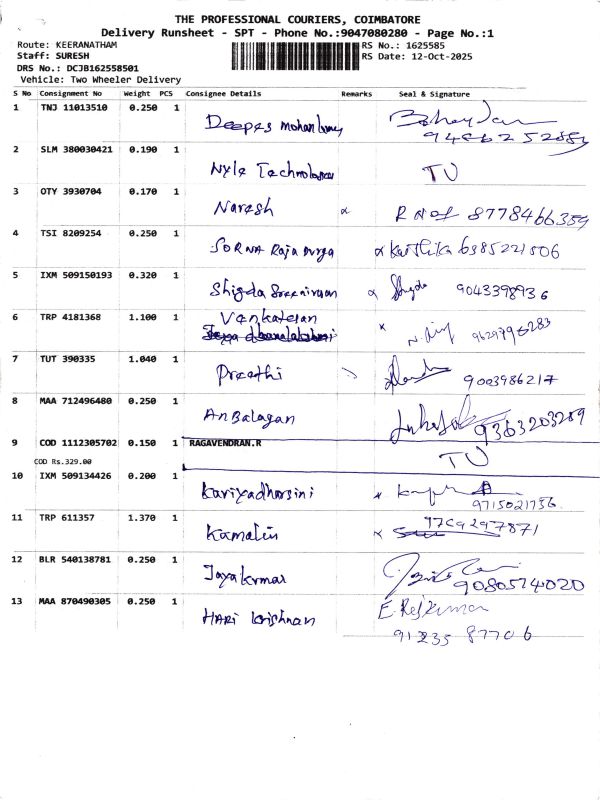 THE PROFESSIONAL COURIERS, COIMBATORE
Delivery Runsheet - SPT - Phone No.:9047080280 - Page No.:1
Route: KEERANATHAM
RS No.: 1625585
Staff: SURESH
RS Date: 12-Oct-2025
DRS No.: DCJB162558501
Vehicle: Two Wheeler Delivery
S No Consignment No Weight PCS Consignee Details Remarks Seal & Signature
1 TNJ 11013510 0.250 1 Deepas
2 SLM 380030421 0.190 1 Nyle TU
3 OTY 3930704 0.170 1 Naresh 8778466359
4 TSI 8209254 0.250 1 SORNA Raja Durga Karthika 6385221506
5 IXM 509150193 0.320 1 Shigda Sreenivasan 9043398936
6 TRP 4181368 1.100 1 Venkatesan
7 TUT 390335 1.040 1 Preethi 9003986217
8 MAA 712496480 0.250 1 Anbalagan 9363203289
9 COD 1112305702 0.150 1 RAGAVENDRAN.R
COD Rs.329.00 TU
10 IXM 509134426 0.200 1 Kariyadharsini
9715021756
11 TRP 611357 1.370 1
12 BLR 540138781 0.250 1 Jayakumar 9080574020
13 MAA 870490305 0.250 1 HARI krishnan E Rajkumar
91235 87706